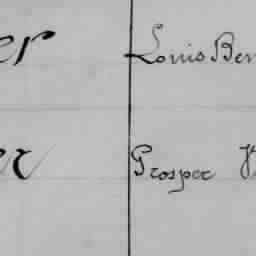 er Louis Ber
er Prosper V